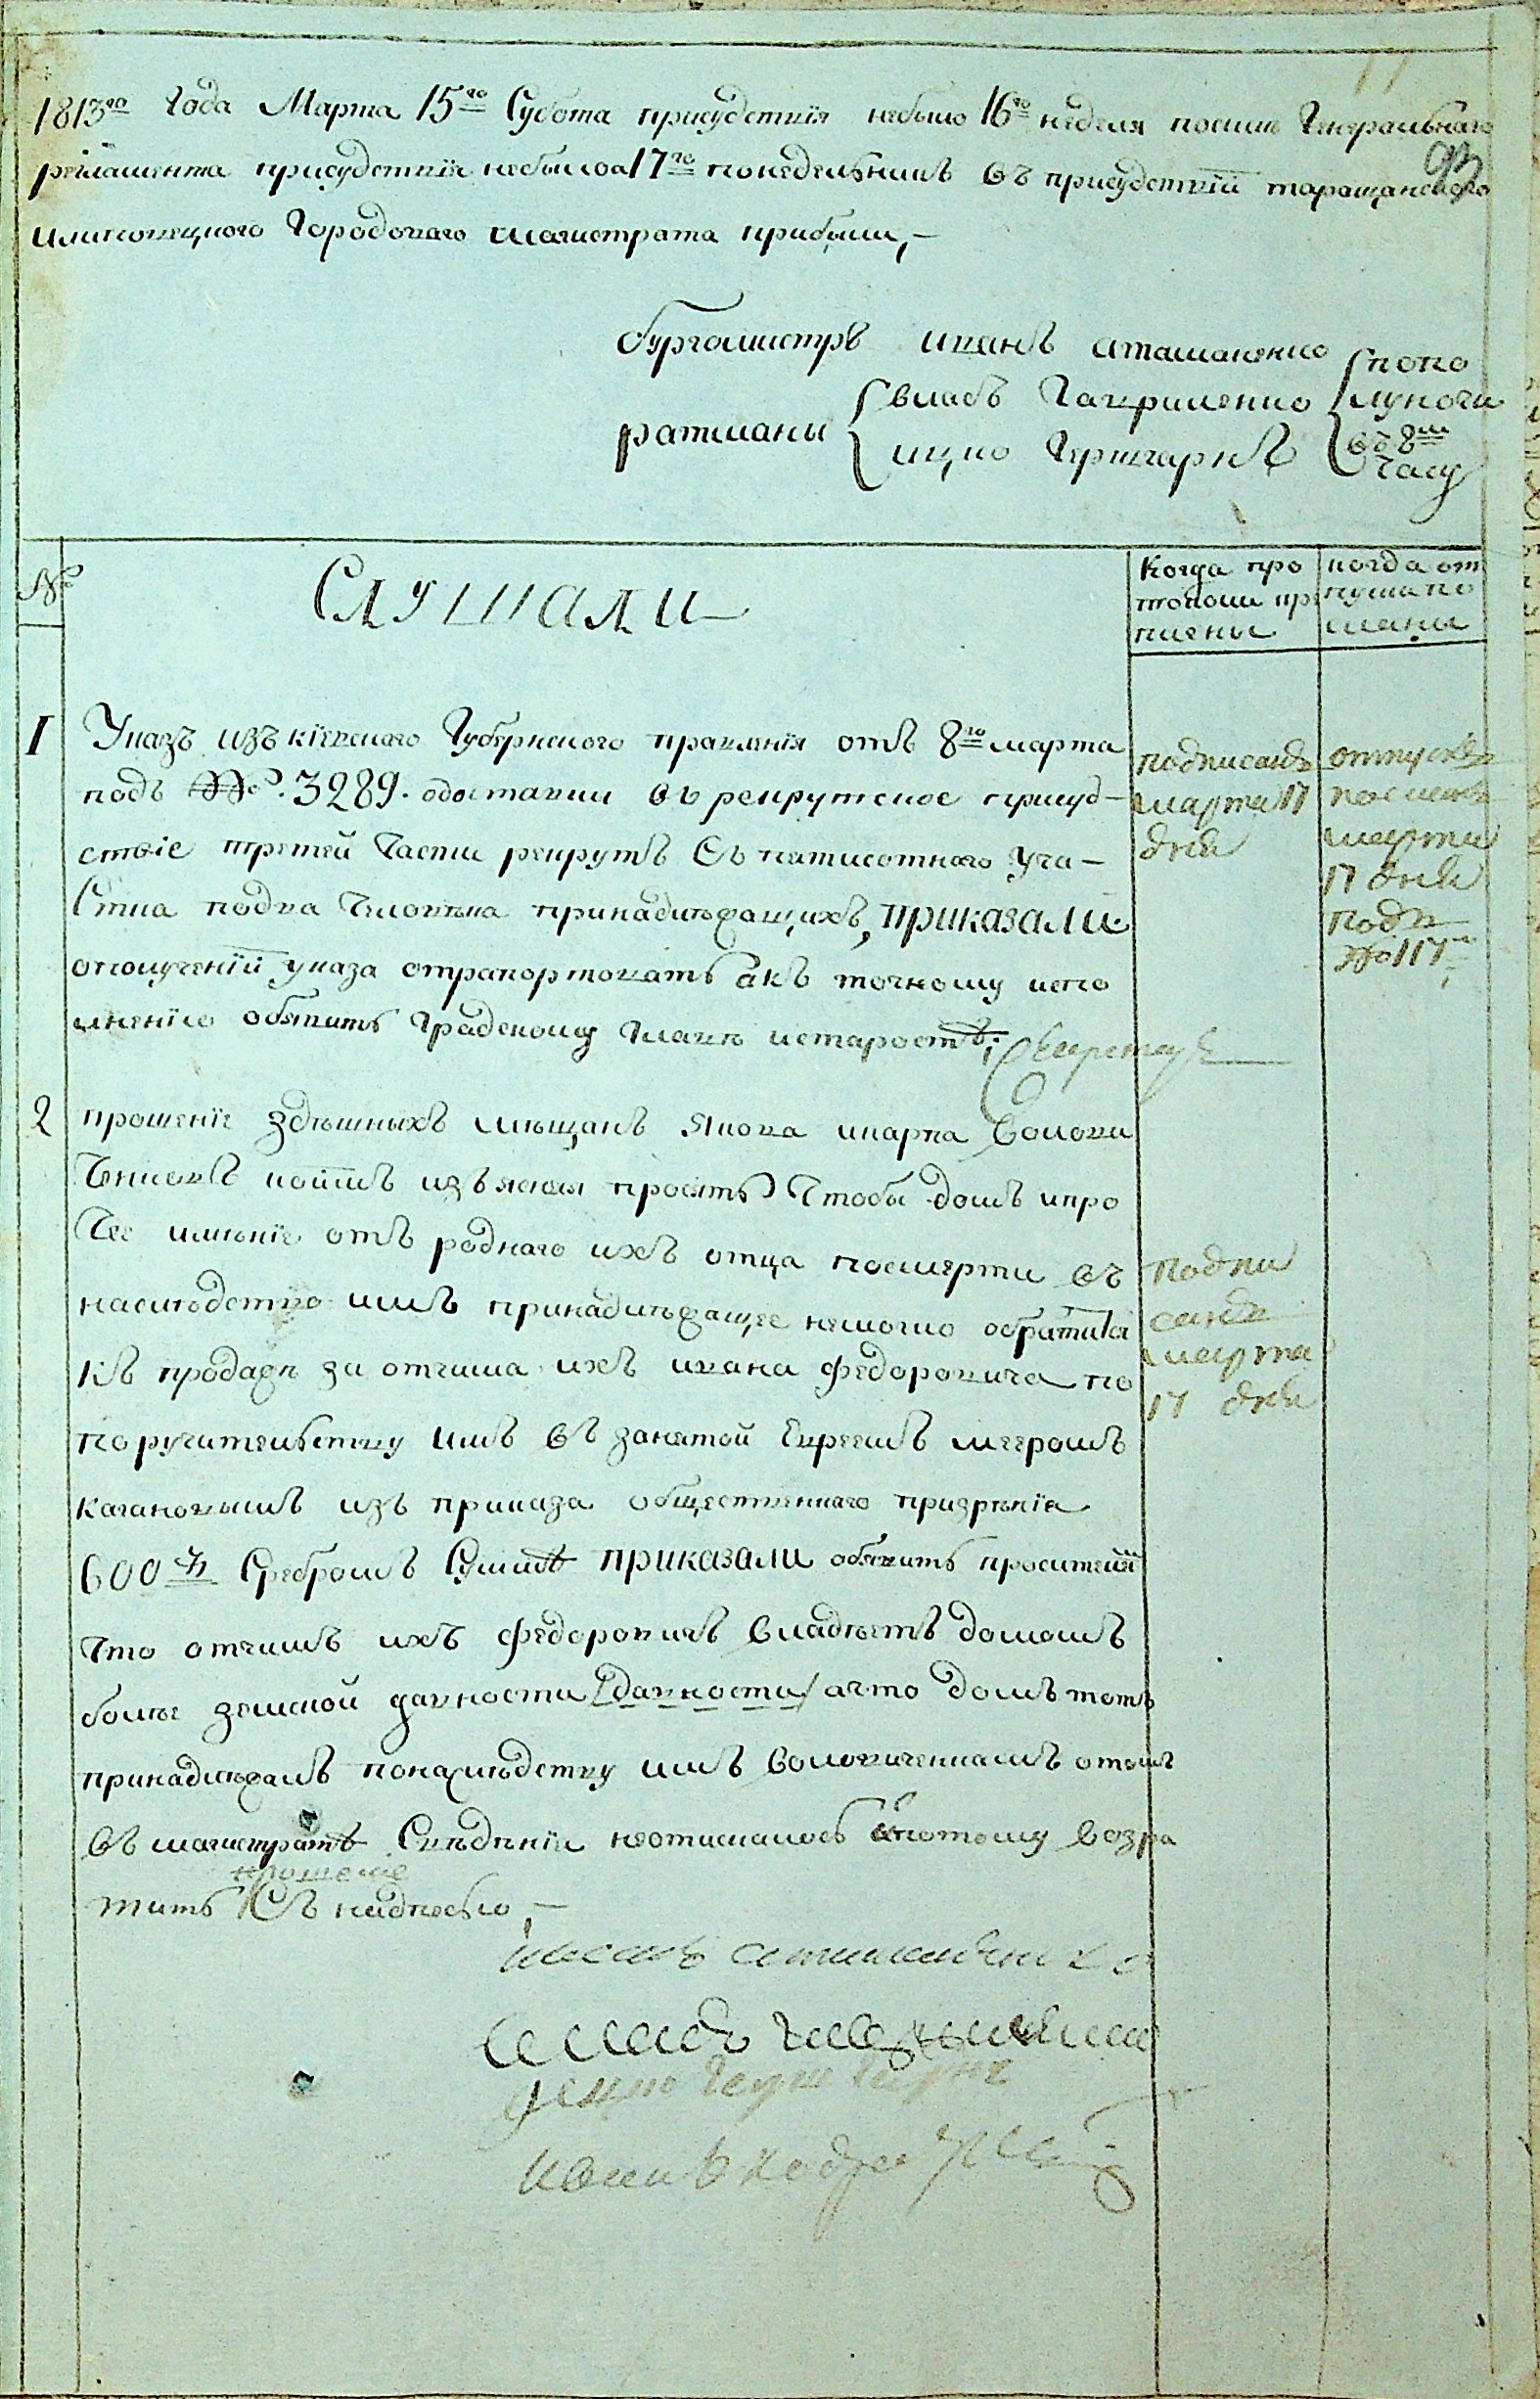 1813го Года Марта 15го Субота присудствія небыло 16го неделя посиле Генеральнаго
регламента присудствія небыло а 17го понедельникъ въ присудствій таращанского
93
Городоваго магистрата прибыли,—
бургомистръ иванъ атаманенко
ратманы
власъ Гавриленко
ицко Гершгарнъ
попо
луночи
въ 8м
Часу
№
Слушали
Когда про
токолы пр
писны
когда от
пуски по
сланы
1
Указъ изъ кіевского Губернского правленія отъ 8го марта
подъ №. 3289. одоставки въ рекрутское присуд-
ствіе третей Части рекрутъ съ пятисотного Уча-
стка подва Человека принадлѣжащихъ, приказали
ополученій указа отрапортовать акъ точному испо
лненію обявить Градскому Главѣ истаростѣ;
подписанъ
марта 17
дня
отпускъ
посланъ
марта
17 дня
подъ
№ 117
2
прошеніе здѣшныхъ мѣщанъ якова икарпа Волови
Ченковъ коимъ изъясняя просятъ Чтобы домъ ипро
Чее имѣніе отъ роднаго ихъ отца посмерти въ
наслѣдство имъ принадлѣжащее немогло обратится
Къ продажѣ за отчима ихъ ивана федоровича по
поручительству имъ въ занятой Евреемъ мееромъ
кагановымъ изъ приказа общественнаго призрѣнія
600 р Сребромъ Суммѣ приказали обявить просителя
Что отчимъ ихъ федоровичъ владѣетъ домомъ
болѣе земской давности /давности/ ачто домъ тотъ
принадлѣжалъ понаслѣдству имъ Воловиченкамъ отомъ
въ магистратѣ Свѣдѣнія неотискалось апотому возра
прошеніе
тить Съ надписью,—
подпи
санъ
марта
17 дня
иванъ атаманенко
власъ
ицко Гершгарнъ